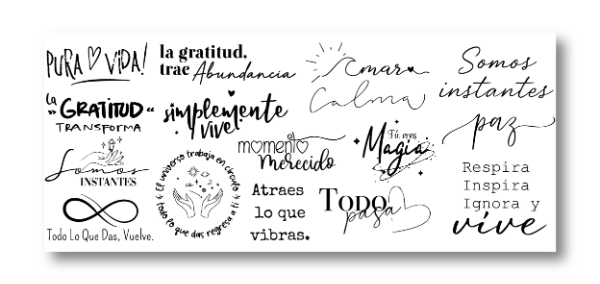 PURA VIDA!
la gratitud,
trae Abundancia
Somos
instantes
Calma
la
"GRATITUD"
TRANSFORMA
simplemente
vive
paz
el
momento
Merecido
Tú eres
Magia
Somos
INSTANTES
El universo trabaja en círculo
todo lo que das regresa a ti
Respira
Inspira
Ignora y
vive
Atraes
lo que
vibras.
TODO
pasa
Todo Lo Que Das, Vuelve.